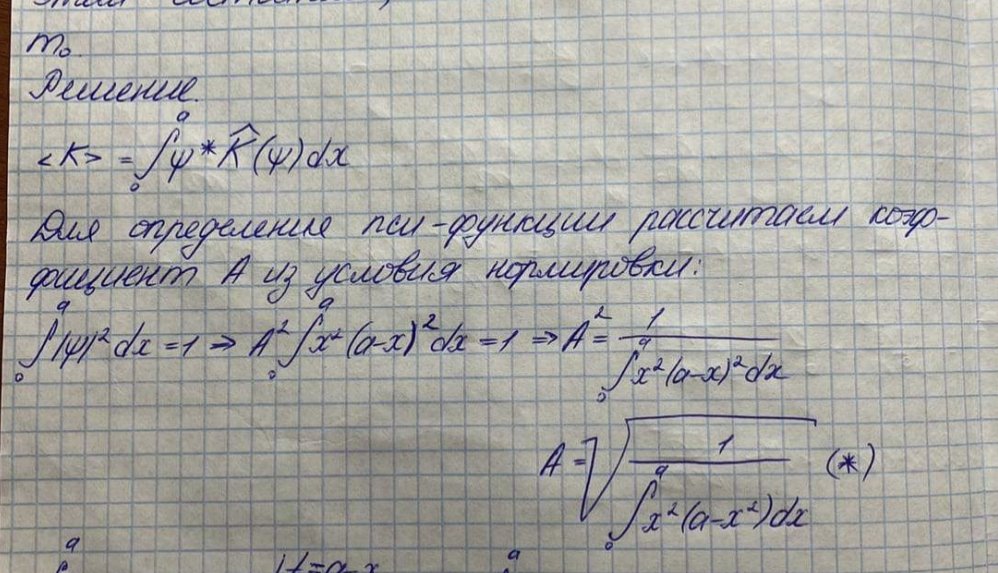 m₀.
Решение.
<K> = ∫₀ᵃ ψ* K̂(ψ) dx
Для определение пси-функции рассчитаем коэф-
фициент A из условия нормировки:
∫₀ᵃ |ψ|² dx = 1 ⇒ A² ∫₀ᵃ x² (a-x)² dx = 1 ⇒ A² = 1 / ∫₀ᵃ x² (a-x)² dx
A = √(1 / ∫₀ᵃ x² (a-x²) dx) (*)